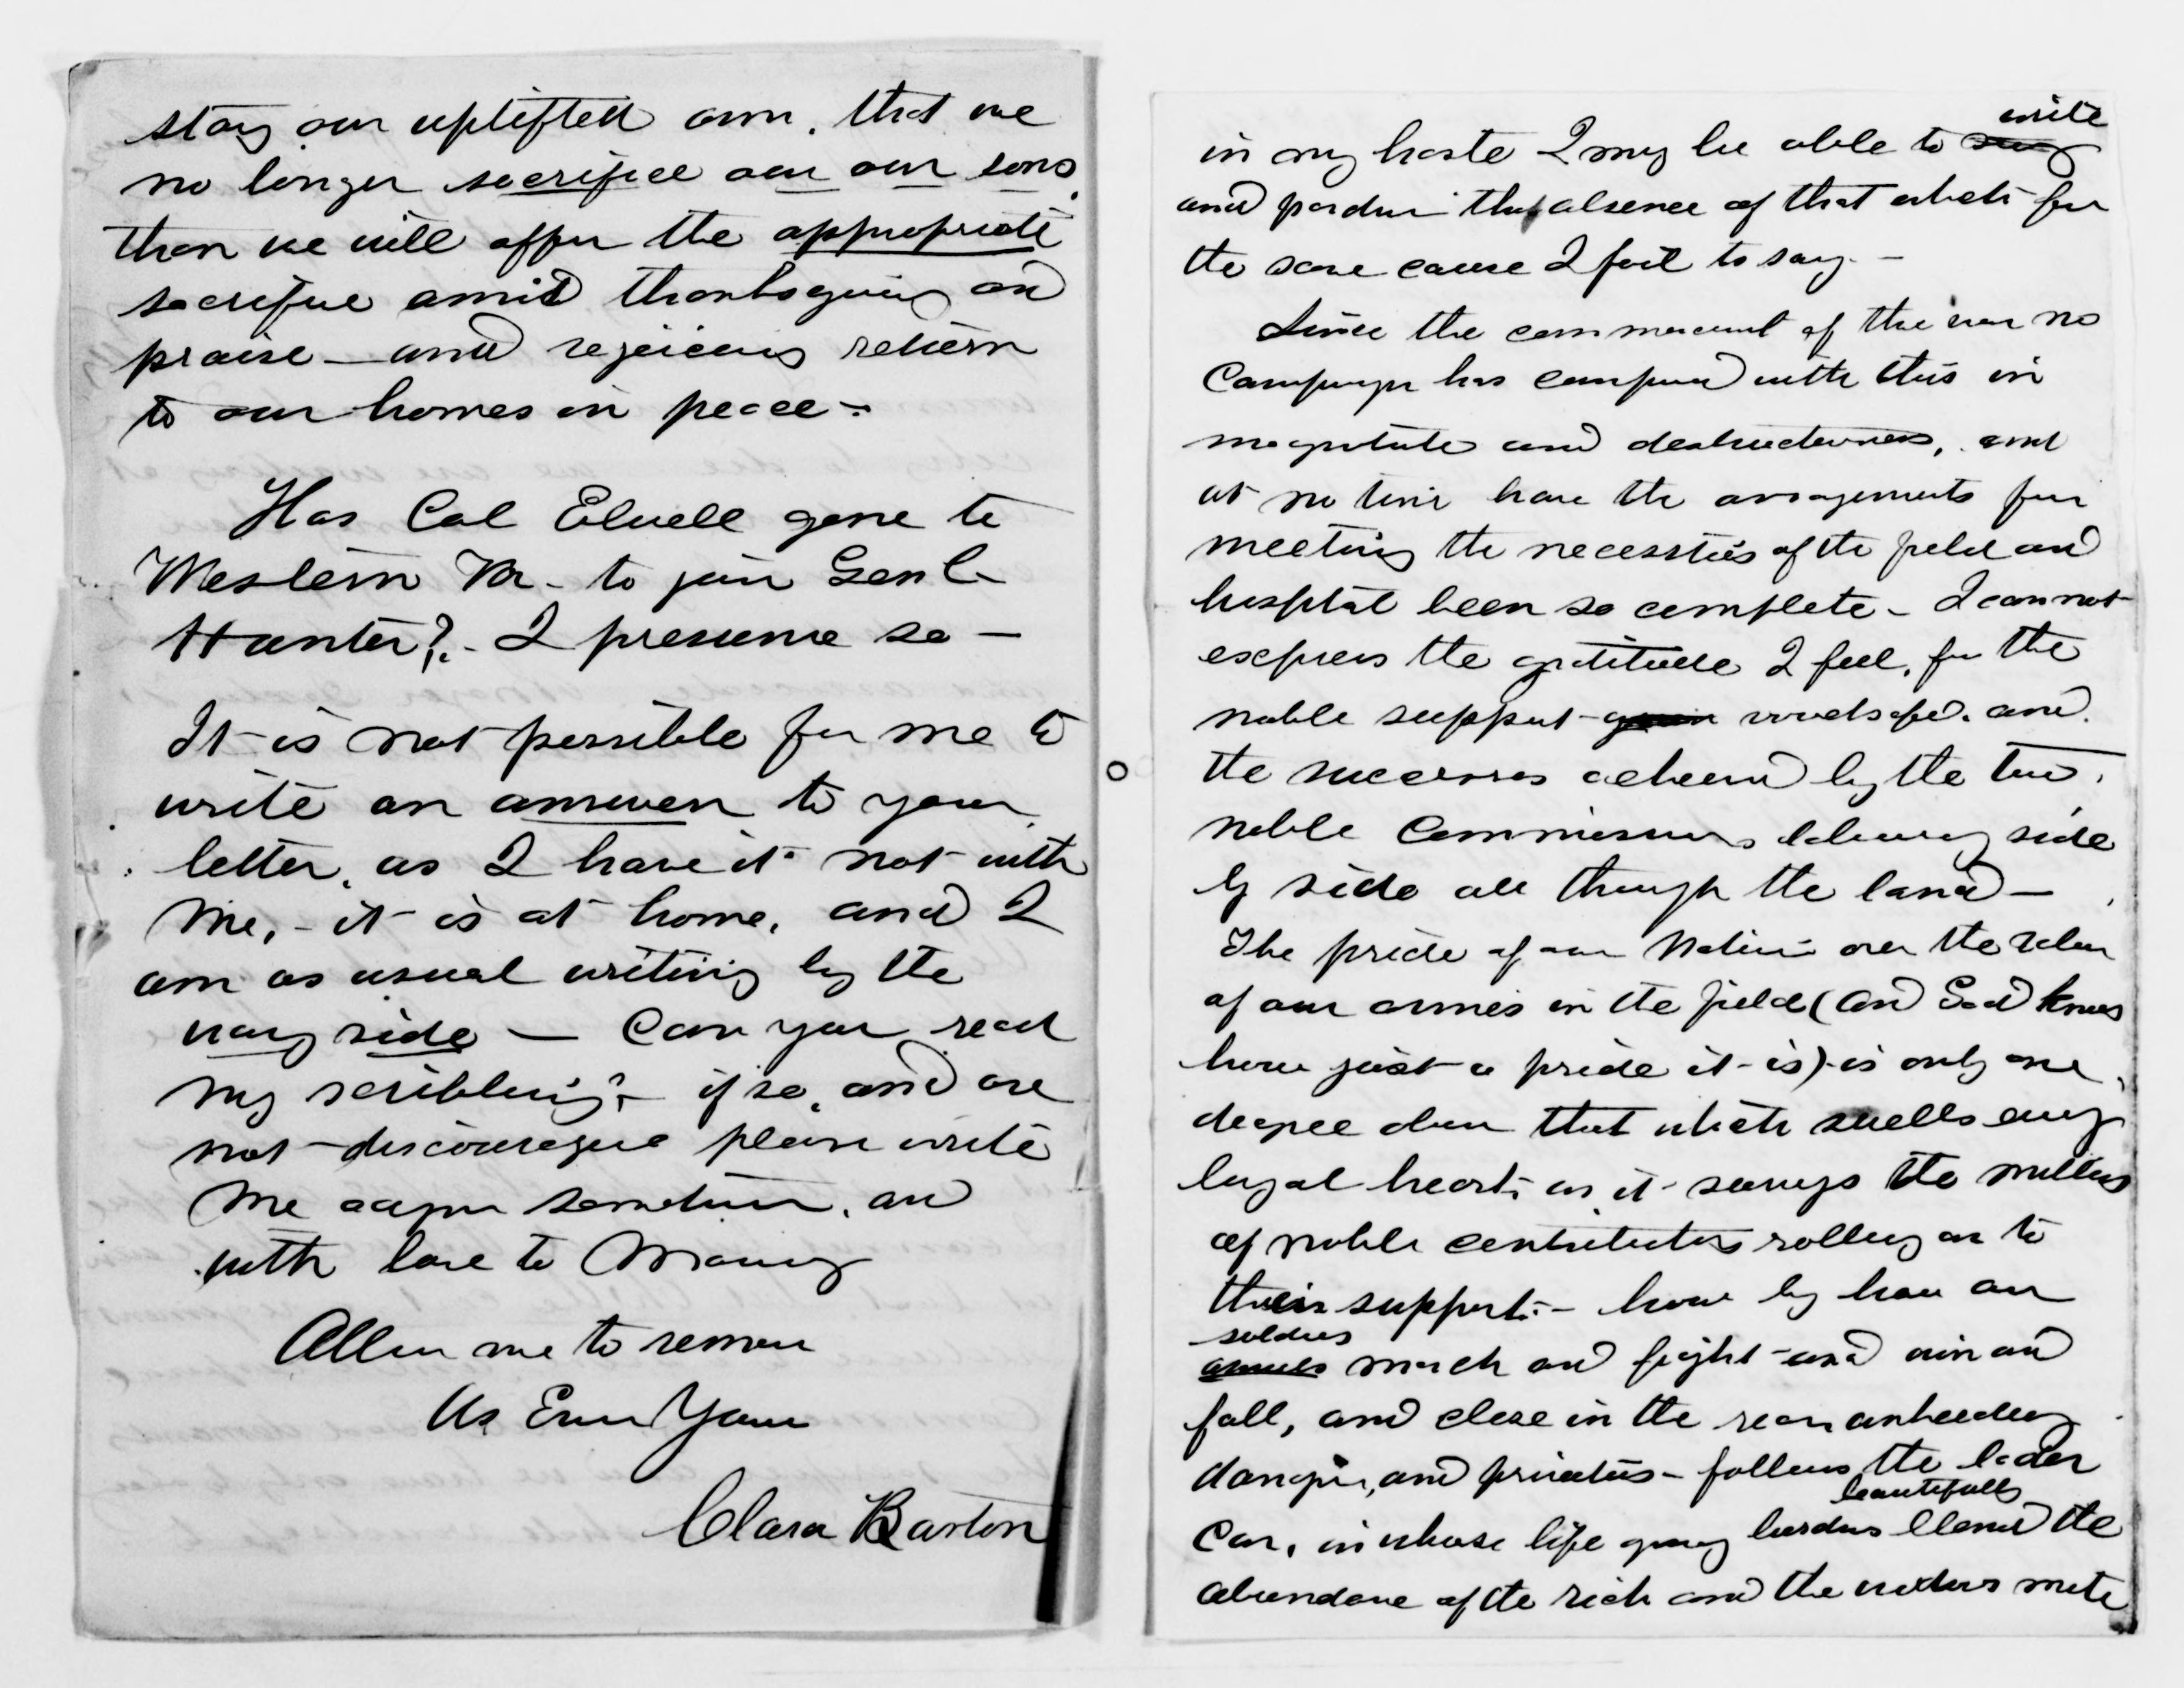 stay our uplifted arm, that we
no longer sacrifice our our sons,
than we will offer the appropriate
sacrifice amid thanksgiving and
praise – and rejoicing return
to our homes in peace –
Has Col Elwell gone to
Western Va – to join Genl
Hunter? – I presume so –
It is not possible for me to
write an answer to your
letter, as I have it not with
me, – it is at home, and I
am as usual writing by the
way side – Can you read
my scribbling? – if so, and are
not discouraged please write
me again sometime, and
with love to Mary
Allow me to remain
As Ever Yours
Clara Barton
write
in my haste I may be able to say
and pardon the absence of that which for
the same cause I fail to say –
Since the commencement of the war no
Campaign has compared with this in
magnitude and destructiveness, and
at no time have the arrangements for
meeting the necessities of the field and
hospital been so complete – I cannot
express the gratitude I feel, for the
noble support given vouchsafed, and
the successes achieved by the two
noble Commissions laboring side
by side all through the land –
The pride of our Nation over the valor
of our armies in the field (and God knows
how just a pride it is) is only one
degree above that which swells every
loyal heart as it surveys the millions
of noble contributors rolling on to
their support – how by how our
soldiers
armies march and fight and win and
fall, and close in the rear unheeding
danger, and privations – follows the laden
beautifully
Car, in whose life giving burdens blend the
abundance of the rich and the widows mite